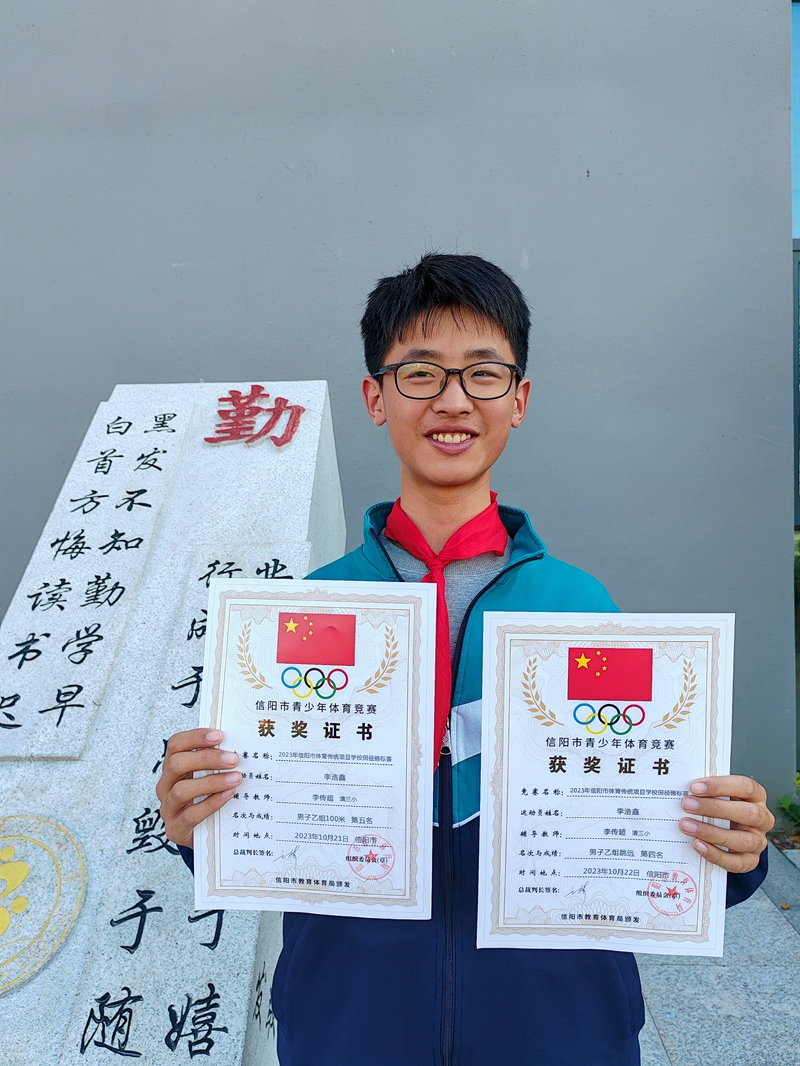 勤
黑发不知勤学早
白首方悔读书迟
业 于嬉
行成于 毁于随
信阳市青少年体育竞赛
获奖证书
竞赛名称: 2023年信阳市体育传统项目学校田径锦标赛
运动员姓名: 李浩鑫
辅导教师: 李传超 潢三小
名次与成绩: 男子乙组100米 第五名
时间地点: 2023年10月21日 信阳市
总裁判长签名: 组织委员会(章)
信阳市教育体育局颁发
信阳市青少年体育竞赛
获奖证书
竞赛名称: 2023年信阳市体育传统项目学校田径锦标赛
运动员姓名: 李浩鑫
辅导教师: 李传超 潢三小
名次与成绩: 男子乙组跳远 第四名
时间地点: 2023年10月22日 信阳市
总裁判长签名: 组织委员会(章)
信阳市教育体育局颁发